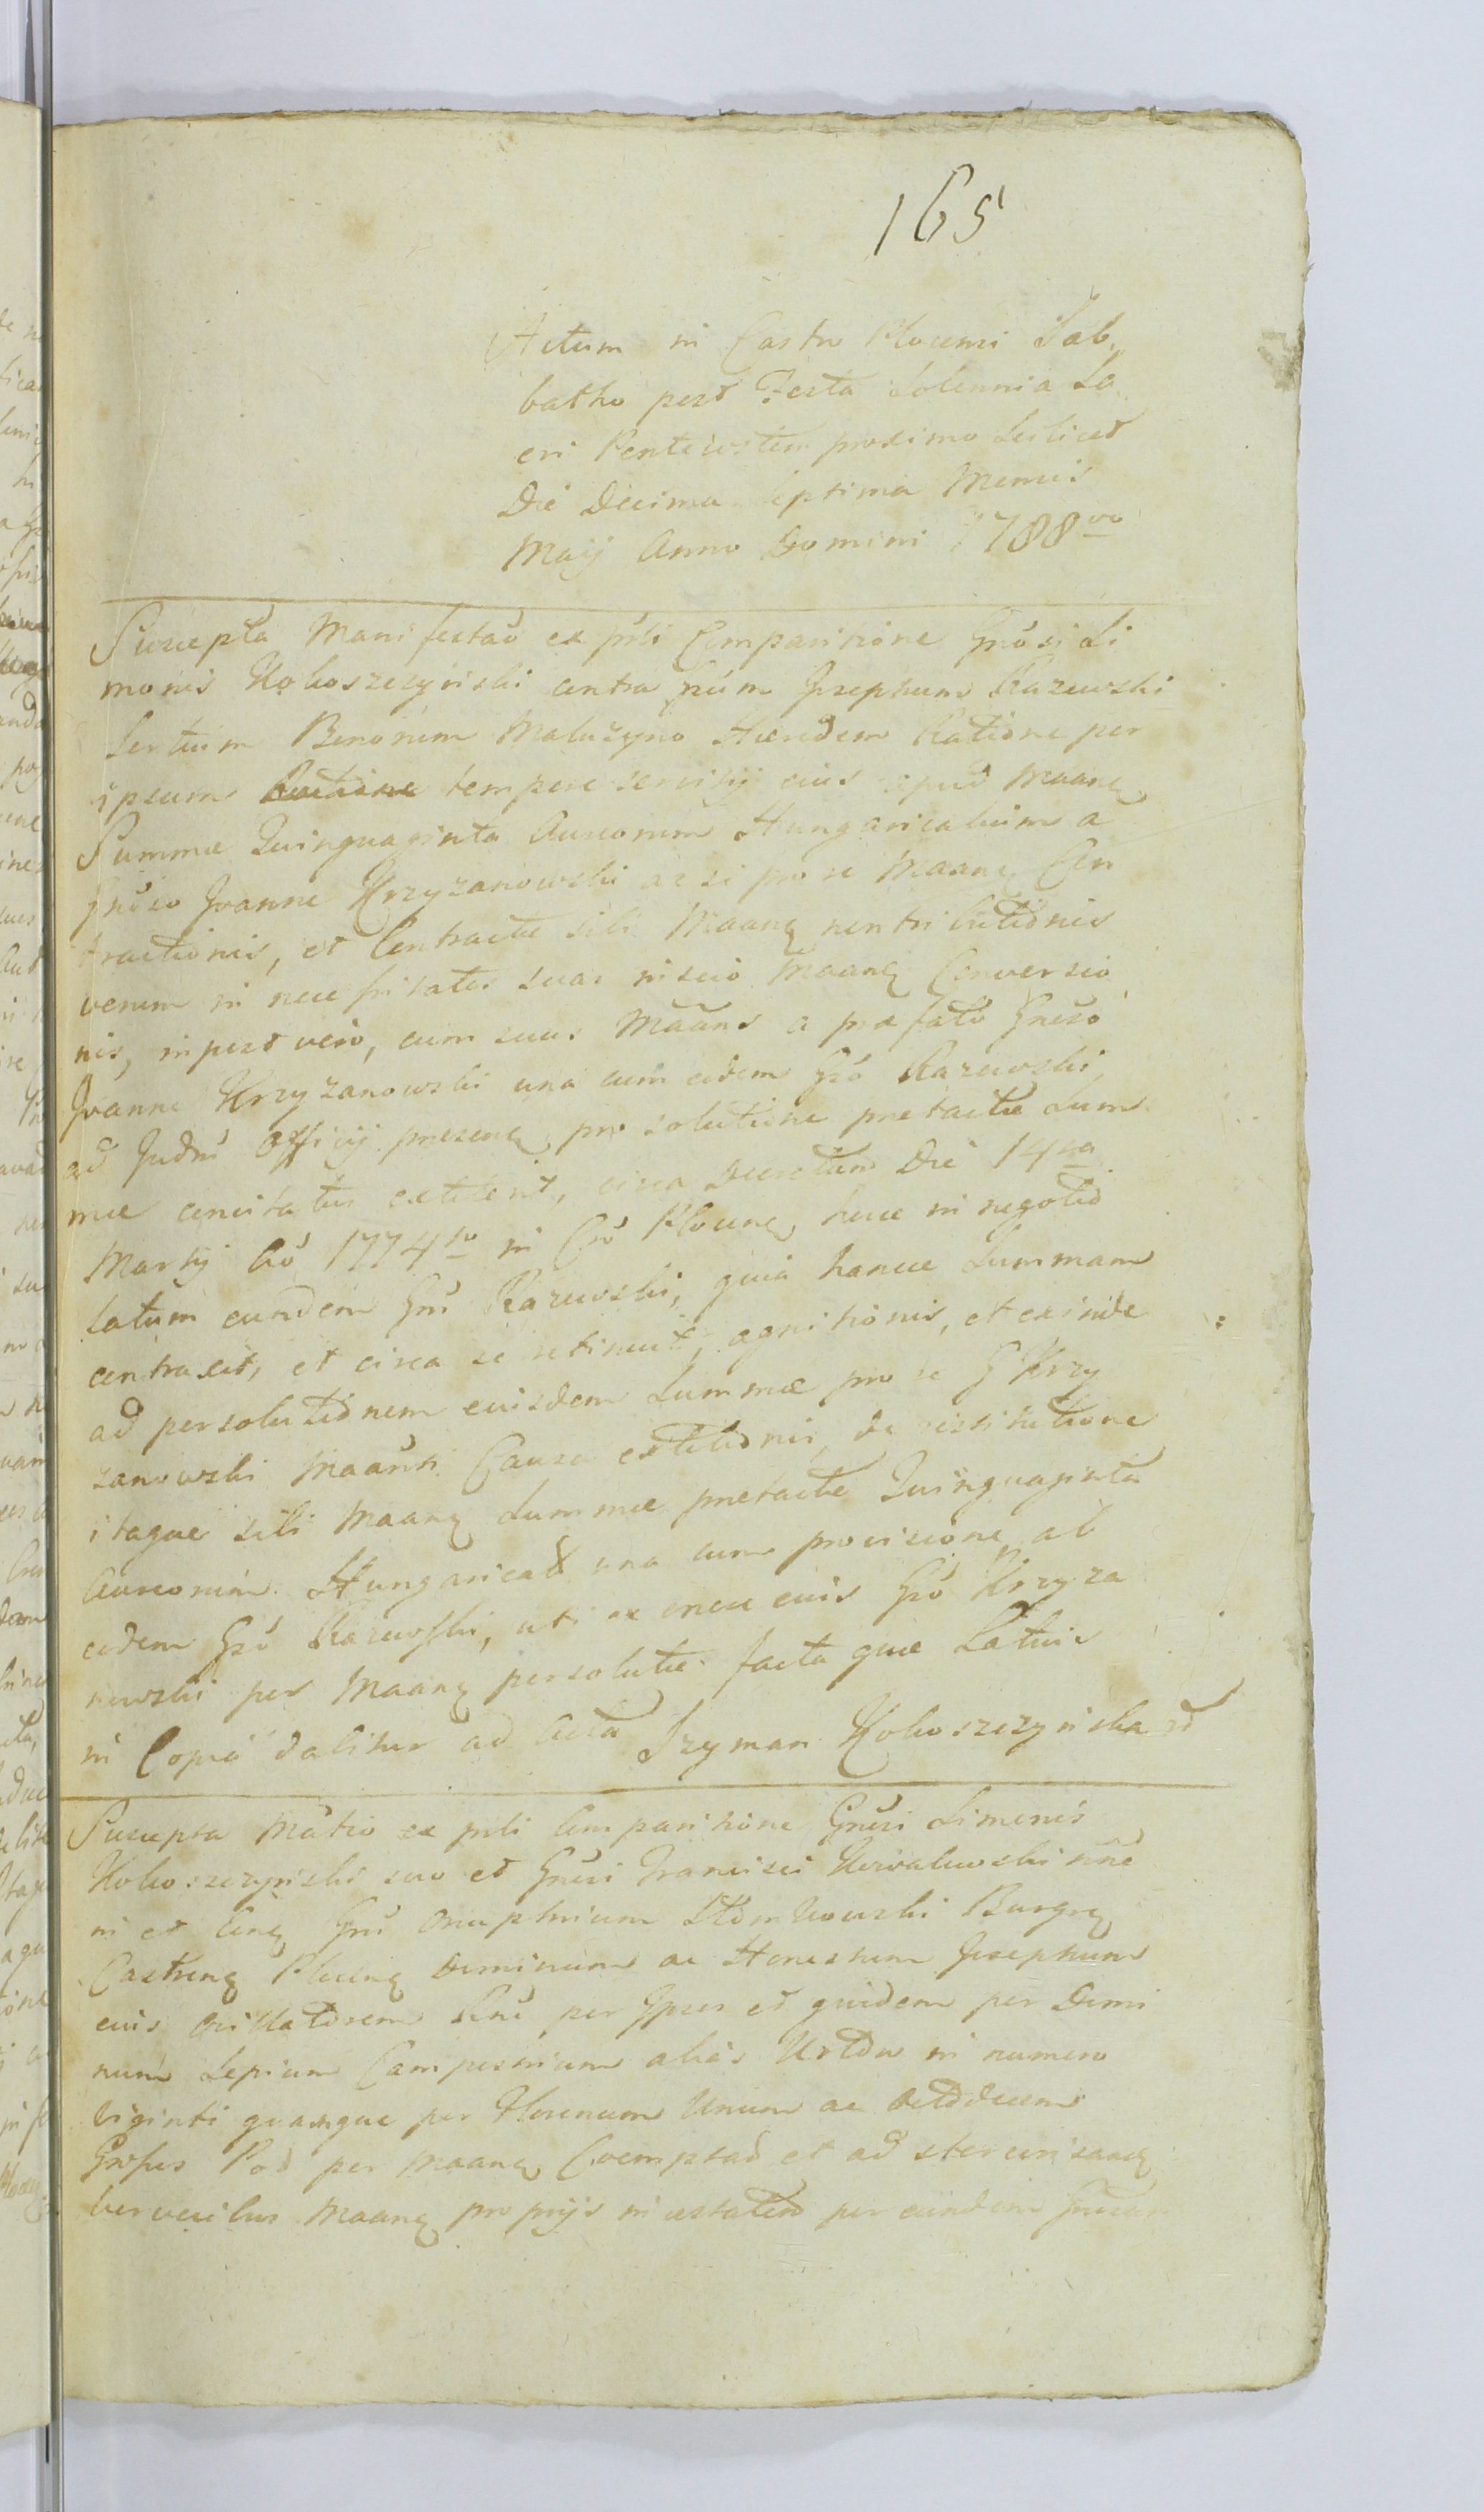 165
Actum in Castro Plocensi Sab,
batho post Festa Solennia Sa
cri Pentecostem proximo Scilicet
Die Decima Septima Mensis
Maij Anno Domini 1788vo
Suscepta Manifestao ex prsti Comparitione Gnosi Si
monis Kokoszczynski contra Josephum Razewski
Bonorum Maluzyno Hæredem Ratione per
ipsum tempore servitij eius apud Maanq
Summæ Quinquaginta Aureorum Hungaricalium a
Gnoso Joanne Krzyzanowski ac si pro se Maanq Con
tractionis, et Contractæ sibi Maanq non tributionis
verum in necessitates suas inscio Maanq Conversio
nis, in post vero, cum suus Maans a præfato Gnoso
Joanne Krzyzanowski una cum eodem Gso Razewski
ad Judm Officij presenq, pro solutione pretactæ Sum
mæ concitatus extiterit, circa Decretum Die 14ta
Martij Ao 1774to in Cso Plocenq, hocce in negotio
latum eundem Gnm Razewski, quia hancce Summam
contraxit, et circa se retinuit, agnitionis, et exinde
ad persolutionem eiusdem Summæ pro se G Krzy
zanowski Maansti Causæ extitionis, de restitutione
itaque sibi Maanq Summæ pretactæ Quinquaginta
Aureorum Hungarical una cum provisione ab
eodem Gso Razewski, uti ex nunc eius Gso Krzyza
nowski per Maanq persolutæ facta quæ Latius
in Copia dabitur ad Acta Szyman Kokoszczynska
Suscepta Matio ex prsti Comparitione Gnosi Simonis
Kokoszczynski suo et Gnosi Francisci Kowalewski nne
ni et Conq Gnm Onuphrium Burgrq
Castrenq Plocenq Dominum ac Honestum Josephum
eius Rne per Ipsos et quidem per Domi
num Sepium Campestrium alias in numero
Viginti quinque per Florenum Unum ac Octodecem
Grossus Pol per Maanq Coemptað et ad
Maanq proprijs in æstaten per eundem Gnosum